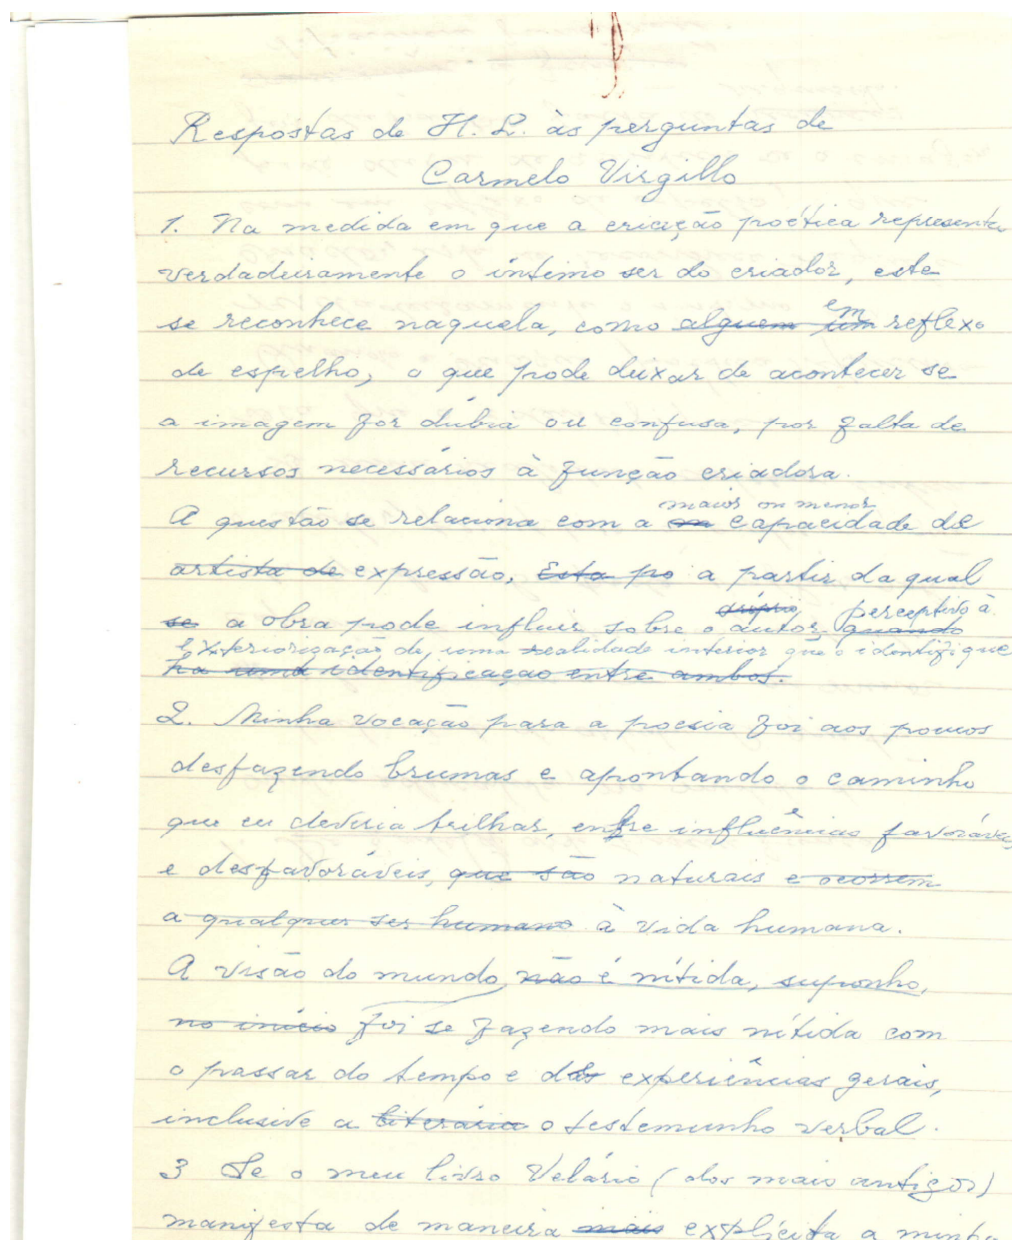 Respostas de H. L. às perguntas de
Carmelo Virgillo
1. Na medida em que a criação poética representa
verdadeiramente o íntimo ser do criador, este
se reconhece naquela, como alguem um em reflexo
de espelho, o que pode deixar de acontecer se
a imagem for dúbia ou confusa, por falta de
recursos necessários à função criadora.
maior ou menor
A questão se relaciona com a capacidade de
artista de expressão, Esta po a partir da qual
se a obra pode influir sobre o autor quando perceptivo à
exteriorização de uma realidade interior que o identifique
ha uma identificação entre ambos.
2. Minha vocação para a poesia foi aos poucos
desfazendo brumas e apontando o caminho
que eu deveria trilhar, entre influências favoráveis
e desfavoráveis, que são naturais e ocorrem
a qualquer ser humano à vida humana.
A visão do mundo não é nítida, suponho,
no início foi se fazendo mais nítida com
o passar do tempo e das experiências gerais,
inclusive a literária o testemunho verbal.
3 Se o meu livro Velário (dos mais antigos)
manifesta de maneira mais explícita a minha